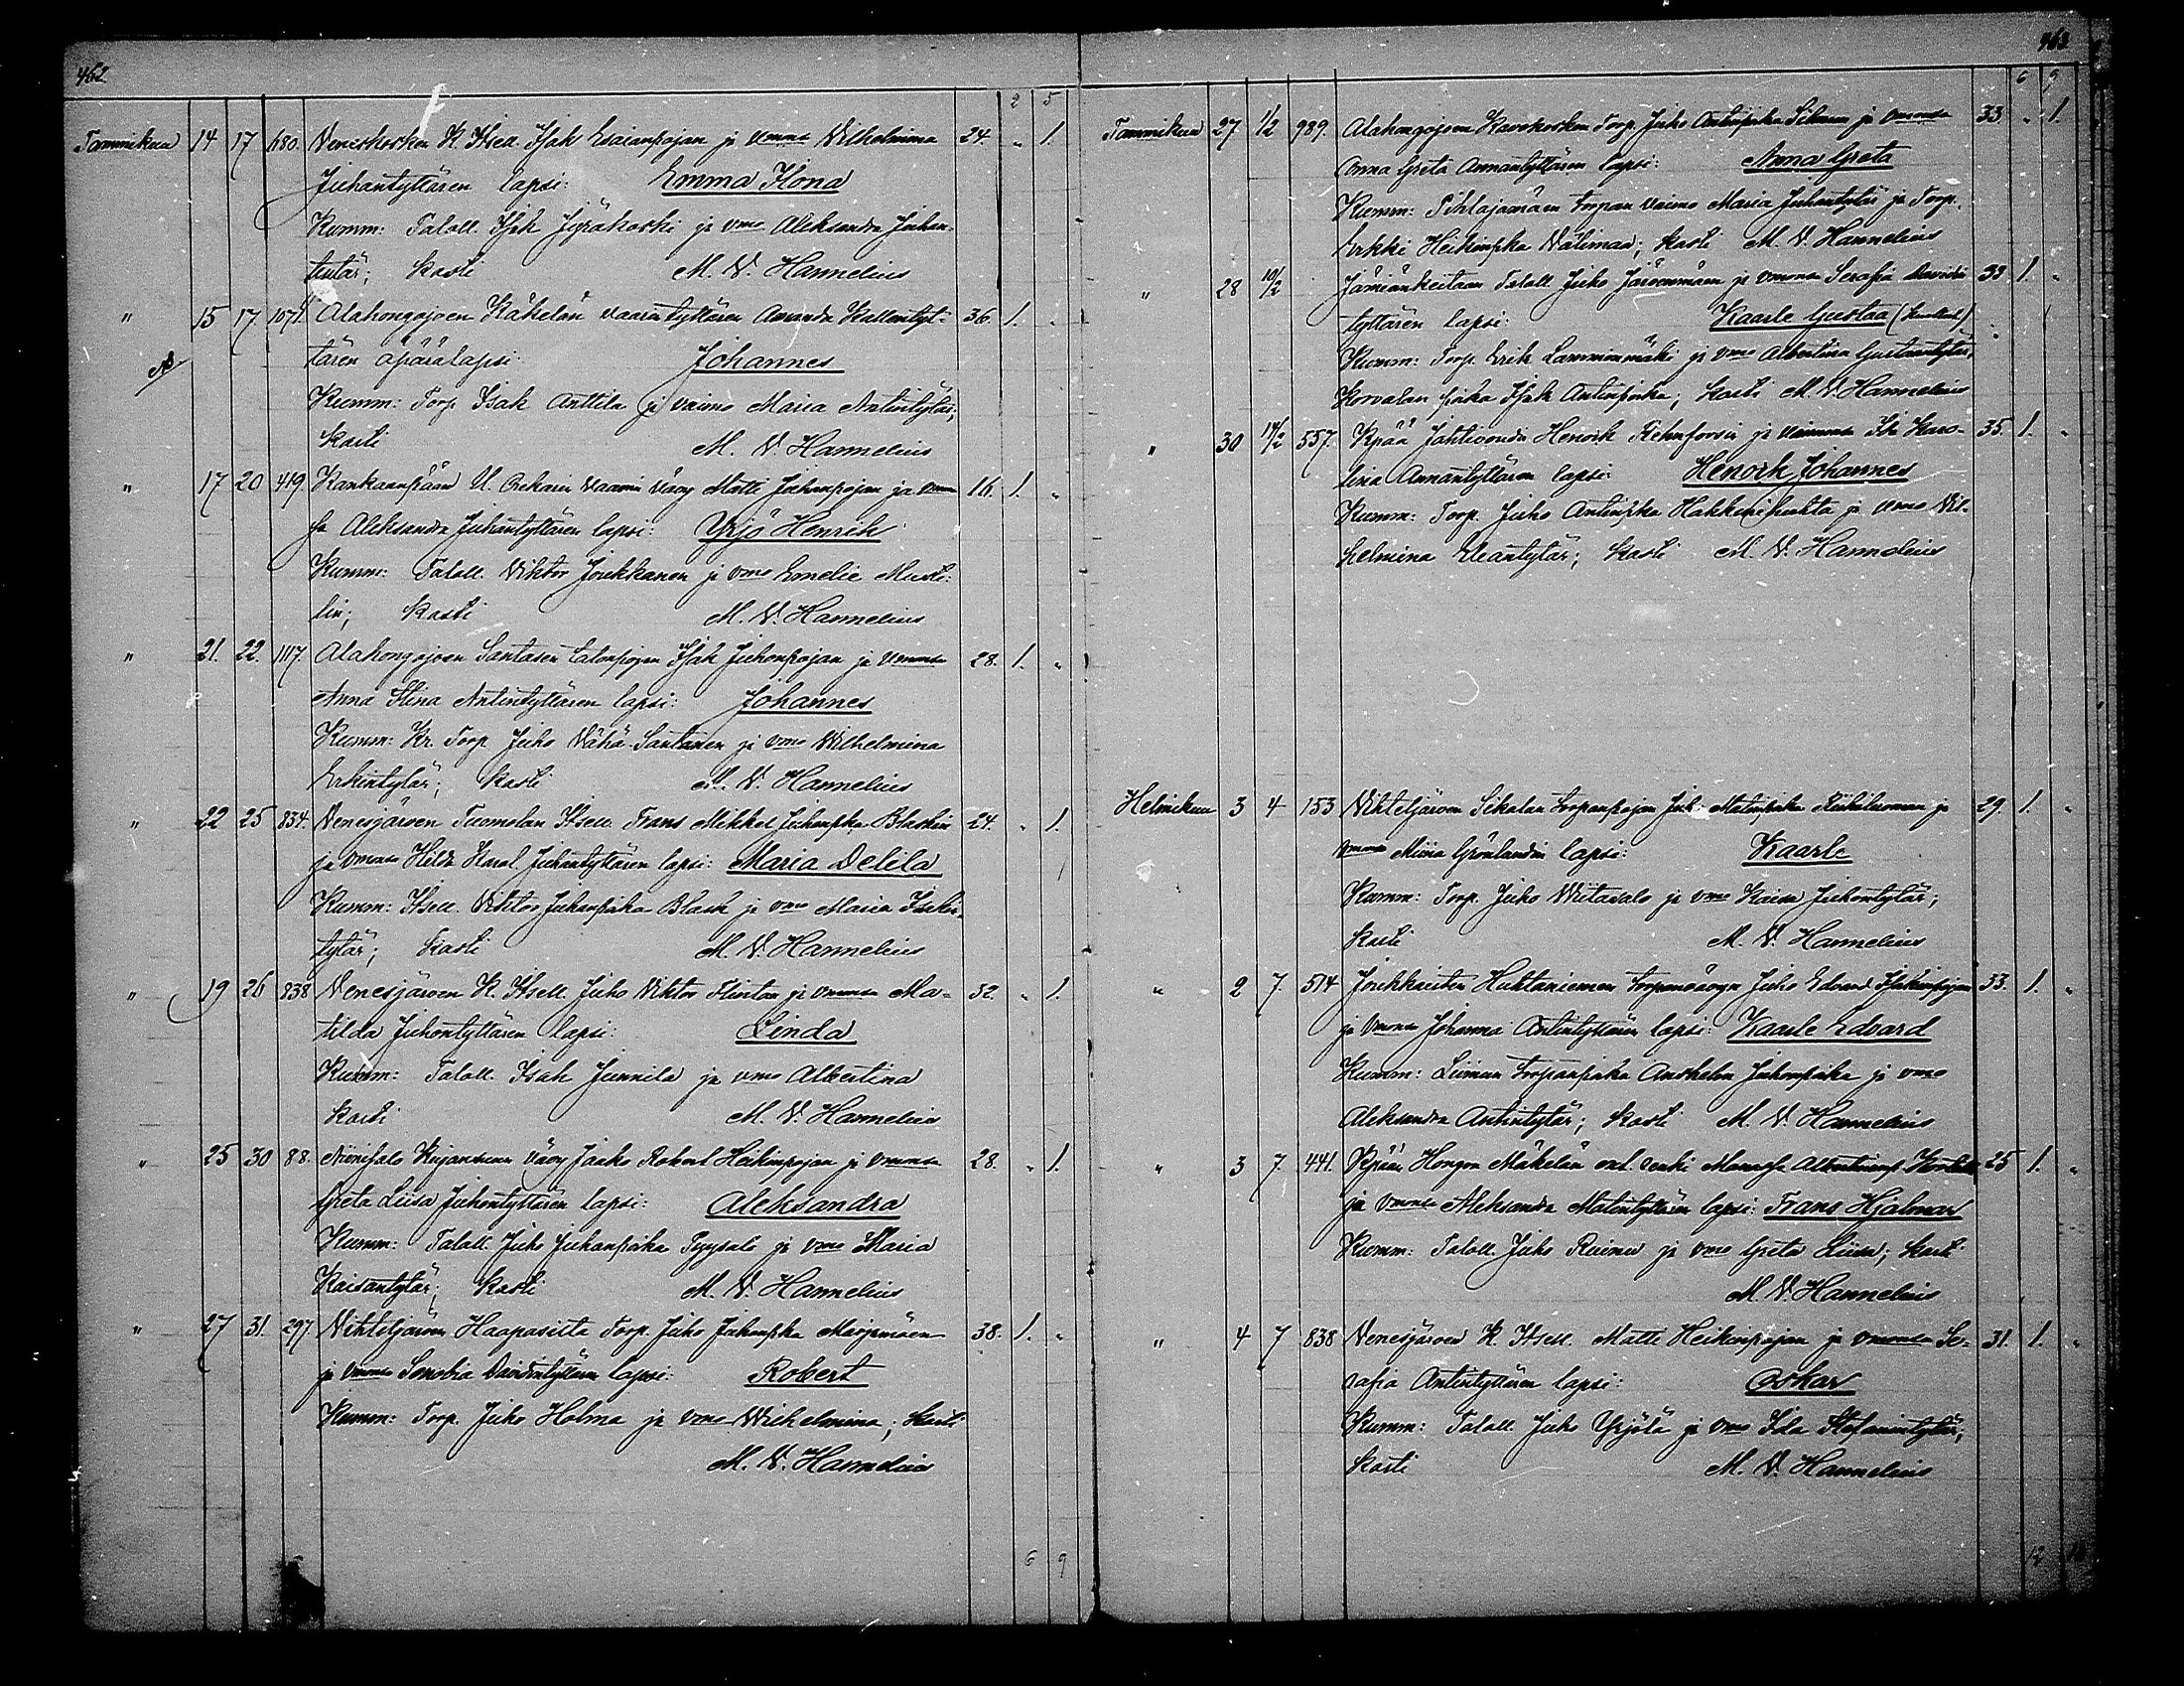 462.
2 5
Tammikuu 14 17 680. Veneskosken K. Itsell. Isak Esaianpojan ja vmonsa Wilhelmina 24. „ 1.
Juhantyttären lapsi: Emma Ilona
Kumm: Taloll. Isak Jyräkoski ja vmo Aleksandra Juhan-
tytär; kasti M. V. Hannelius
„ 15 17. 1071. Alahongojoen Käkelän vaarin tyttären Amanda Kallentyt- 36. 1. „
tären äpärälapsi: Johannes
Kumm: Torp. Isak Anttila ja vaimo Maria Antintytär;
kasti M. V. Hannelius
„ 17 20 419. Kankaanpään U. vaarin vävy Matti Juhanpojan ja vmon 16. 1. „
sa Aleksandra Juhantyttären lapsi: Yrjö Henrik
Kumm: Taloll. Viktor Joukkanen ja vmo Emelie Muste-
lin; kasti M. V. Hannelius
„ 21. 22. 1117. Alahongojoen Santasen talonpojan Isak Juhonpojan ja vmonsa 28. 1. „
Anna Stina Antintyttären lapsi: Johannes
Kumm: Kr. Torp. Juho Vähä-Santanen ja vmo Wilhelmina
Erkintytär; kasti M. V. Hannelius
„ 22 25 834. Venesjärven Tuomolan Itsell. Frans Mikkel Juhanpka Blaskin 24. „ 1.
ja vmonsa Hilda Karol. Juhantyttären lapsi: Maria Delila
Kumm: Itsell. Viktor Juhanpoika Blask ja vmo Maria Isakin-
tytär; kasti M. V. Hannelius
„ 19 26 838 Venesjärven K. Itsell. Juho Viktor Flintan ja vmonsa Ma- 32. „ 1.
tilda Juhontyttären lapsi: Linda
Kumm: Taloll. Isak Junnila ja vmo Albertina
kasti M. V. Hannelius
„ 25 30 88. Niinisalo Kujansuun vävy Jaako Robert Heikinpojan ja vmonsa 28. „ 1.
Greta Liisa Juhontyttären lapsi: Aleksandra
Kumm: Taloll. Juho Juhanpoika Syysalo ja vmo Maria
Kaisantytär; kasti M. V. Hannelius
„ 27 31. 297. Vihteljärven Haapasilta Torp. Juho Juhanpka Marjamäen 38. 1. „
ja vmonsa Senobia Davidintyttären lapsi: Robert
Kumm: Torp. Juho Holma ja vmo Wilhelmina; kasti
M. V. Hannelius
6 9
463.
6 9
Tammikuu 27 1/2 989. Alahongojoen Kavokosken Torp. Juho Antinpoika ja vmonsa 33 „ 1.
Anna Greta Annantyttären lapsi: Anna Greta
Kumm: Pihlajamäen torpan vaimo Maria Juhantytär ja Torp.
Erkki Heikinpka Välimaa; kasti M. V. Hannelius
„ 28 10/2 Jämiänkeitaan Taloll. Juho Järvenmäen ja vmonsa Serafia Davidin 33 1. „
tyttären lapsi: Kaarle Gustaa
Kumm: Torp. Erik Lamminmäki ja vmo Albertina Gustaantytär,
Korvalan poika Isak Antinpoika; kasti M. V. Hannelius
„ 30 14/2 557. Kpää Jahtivoudin Henrik Rehnforsin ja vaimonsa Ida Karo- 35. 1. „
lina Annantyttären lapsi: Henrik Johannes
Kumm: Torp. Juho Antinpka Hakkinihuhta ja vmo Vil-
helmina Eleantytär; kasti M. V. Hannelius
Helmikuu 3 4 153 Vihteljärven Sikalan torpanpojan Juh. Matinpoika ja 29. 1. „
vmonsa Miina Grönlundin lapsi: Kaarle
Kumm: Torp. Juho Viitasalo ja vmo Kaisa Juhontytär;
kasti M. V. Hannelius
„ 2 7. 574 Huhtaniemen torpanvävyn Juho Edvard Isakinpojan 33. 1. „
ja vmonsa Johanna Antintyttären lapsi: Kaarle Edvard
Kumm: Liiman torpanpoika Anshelm Juhonpoika ja vmo
Aleksandra Antintytär; kasti M. V. Hannelius
„ 3 7. 441. Kpään Hongon Mäkelän ent. renki Albertinanp. 25 1. „
ja vmonsa Aleksandra Matintyttären lapsi: Frans Hjalmar
Kumm: Taloll. Juho Raima ja vmo Greta Liisa; kasti
M. V. Hannelius
„ 4 7 838 Venesjärven K. Itsell. Matti Heikinpojan ja vmonsa Se- 31. 1. „
rafia Antintyttären lapsi: Oskar
Kumm: Taloll. Juho Yrjölä ja vmo Ida Stefanintytär;
kasti M. V. Hannelius
12